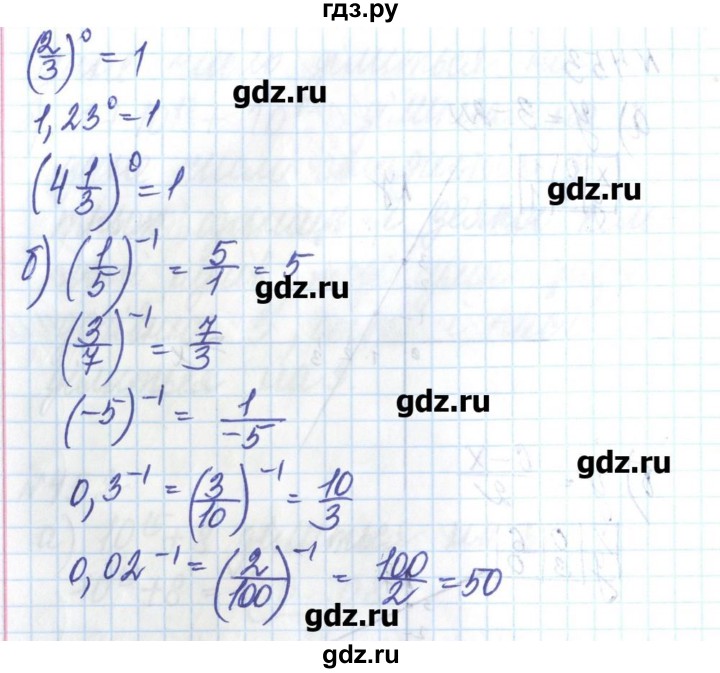 гдз.ру
(2/3)⁰ = 1
gdz.ru
1,23⁰ = 1
(4 1/3)⁰ = 1
gdz.ru
б) (1/5)⁻¹ = 5/1 = 5
gdz.ru
(3/7)⁻¹ = 7/3
(−5)⁻¹ = 1/−5
gdz.ru
0,3⁻¹ = (3/10)⁻¹ = 10/3
gdz.ru
0,02⁻¹ = (2/100)⁻¹ = 100/2 = 50
gdz.ru
gdz.ru